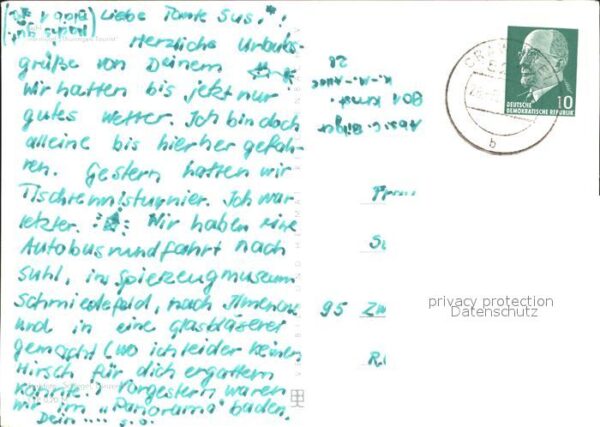 Liebe Tante Sus.!
Herzliche Urlaubs-
grüße von Deinem
Wir hatten bis jetzt nur
gutes Wetter. Ich bin doch
alleine bis hierher gefah-
ren. Gestern hatten wir
Tischtennisturnier. Ich war
letzter. Wir haben eine
Autobusrundfahrt nach
Suhl, ins Spielzeugmuseum
Schmiedefeld, nach Ilmenau
und in eine Glasbläserei
gemacht (wo ich leider keinen
Hirsch für dich ergattern
konnte. Vorgestern waren
wir im "Panorama" baden.
Dein
DEUTSCHE
DEMOKRATISCHE REPUBLIK
10
b
28
K.-M.-Allee
Absd.
95 Zw
privacy protection
Datenschutz